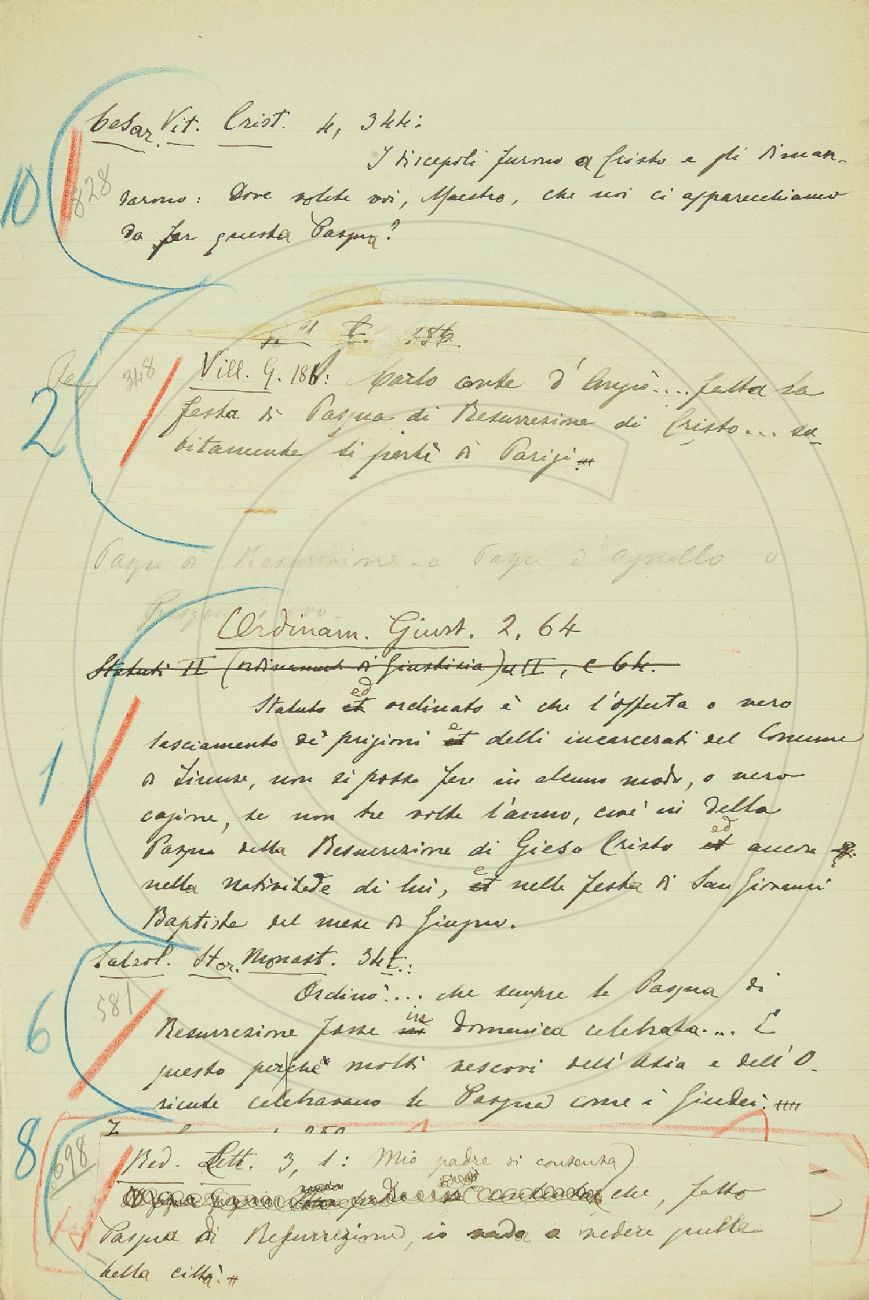 Cesar. Vit. Crist. 4, 344:
I discepoli furono a Cristo e gli diman-
10 828
darono: Dove volete voi, Maestro, che noi ci apparecchiamo
da far questa Pasqua?
348
Vill. G. 186: Carlo conte d'Angiò.... fatta la
2
festa di Pasqua di Resurrezione di Cristo... su-
bitamente si partì di Parigi
Pasqua di Resurrezione o Pasqua d'agnello o
Ordinam. Giust. 2, 64
Statuti II (Ordinamenti di Giustizia) II, c 64.
ed
Statuto et ordinato è che l'offerta o vero
e
lasciamento de' prigioni et delli incarcerati del Comune
1
di Firenze, non si possa fare in alcuno modo, o vero
cagione, se non tre volte l'anno, cioè in della
ed
Pasqua della Resurrezione di Gieso Cristo et ancora
e
nella natività de di lui, et nella festa di San Giovanni
Baptista del mese di Giugno.
Stor. Monast. 344:
581
Ordinò.... che sempre la Pasqua di
6
in
Resurrezione fosse domenica celebrata.... E
questo perchè molti vescovi dell'Asia e dell'O-
riente celebravano la Pasqua come i Giudei.
8 698
Red. Lett. 3, 1: Mio padre si contenta
che, fatto
Pasqua di Resurrezione, io vada a vedere quella
bella città.